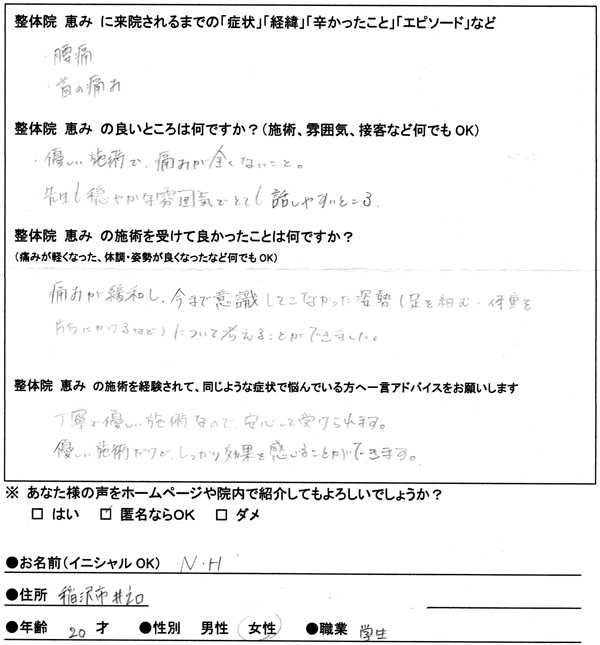 整体院 恵み に来院されるまでの「症状」「経緯」「辛かったこと」「エピソード」など
・腰痛
・首の痛み
整体院 恵み の良いところは何ですか？（施術、雰囲気、接客など何でもOK）
・優しい施術で、痛みが全くないこと。
先生も穏やかな雰囲気でとても話しやすいところ。
整体院 恵み の施術を受けて良かったことは何ですか？
（痛みが軽くなった、体調・姿勢が良くなったなど何でもOK）
痛みが緩和し、今まで意識してこなかった姿勢（足を組む・体重を
片方にかけるなど）について考えることができました。
整体院 恵み の施術を経験されて、同じような症状で悩んでいる方へ一言アドバイスをお願いします
丁寧で優しい施術なので、安心して受けられます。
優しい施術だけど、しっかり効果を感じることができます。
※ あなた様の声をホームページや院内で紹介してもよろしいでしょうか？
□ はい ☑ 匿名ならOK □ ダメ
●お名前（イニシャルOK） N・H
●住所 稲沢市
●年齢 20 才 ●性別 男性 女性 ●職業 学生